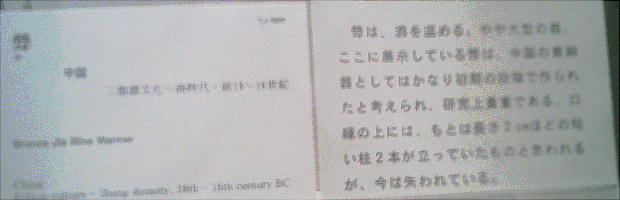 斝
中国
二里頭文化～商時代・前18～16世紀
Bronze Jia Wine Warmer
China
dynasty, 18th - 16th century BC
斝は、酒を温める、やや大型の器。
ここに展示している斝は、中国の青銅
器としてはかなり初期の段階で作られ
たと考えられ、研究上貴重である。口
縁の上には、もとは長さ2cmほどの短
い柱2本が立っていたものと思われる
が、今は失われている。